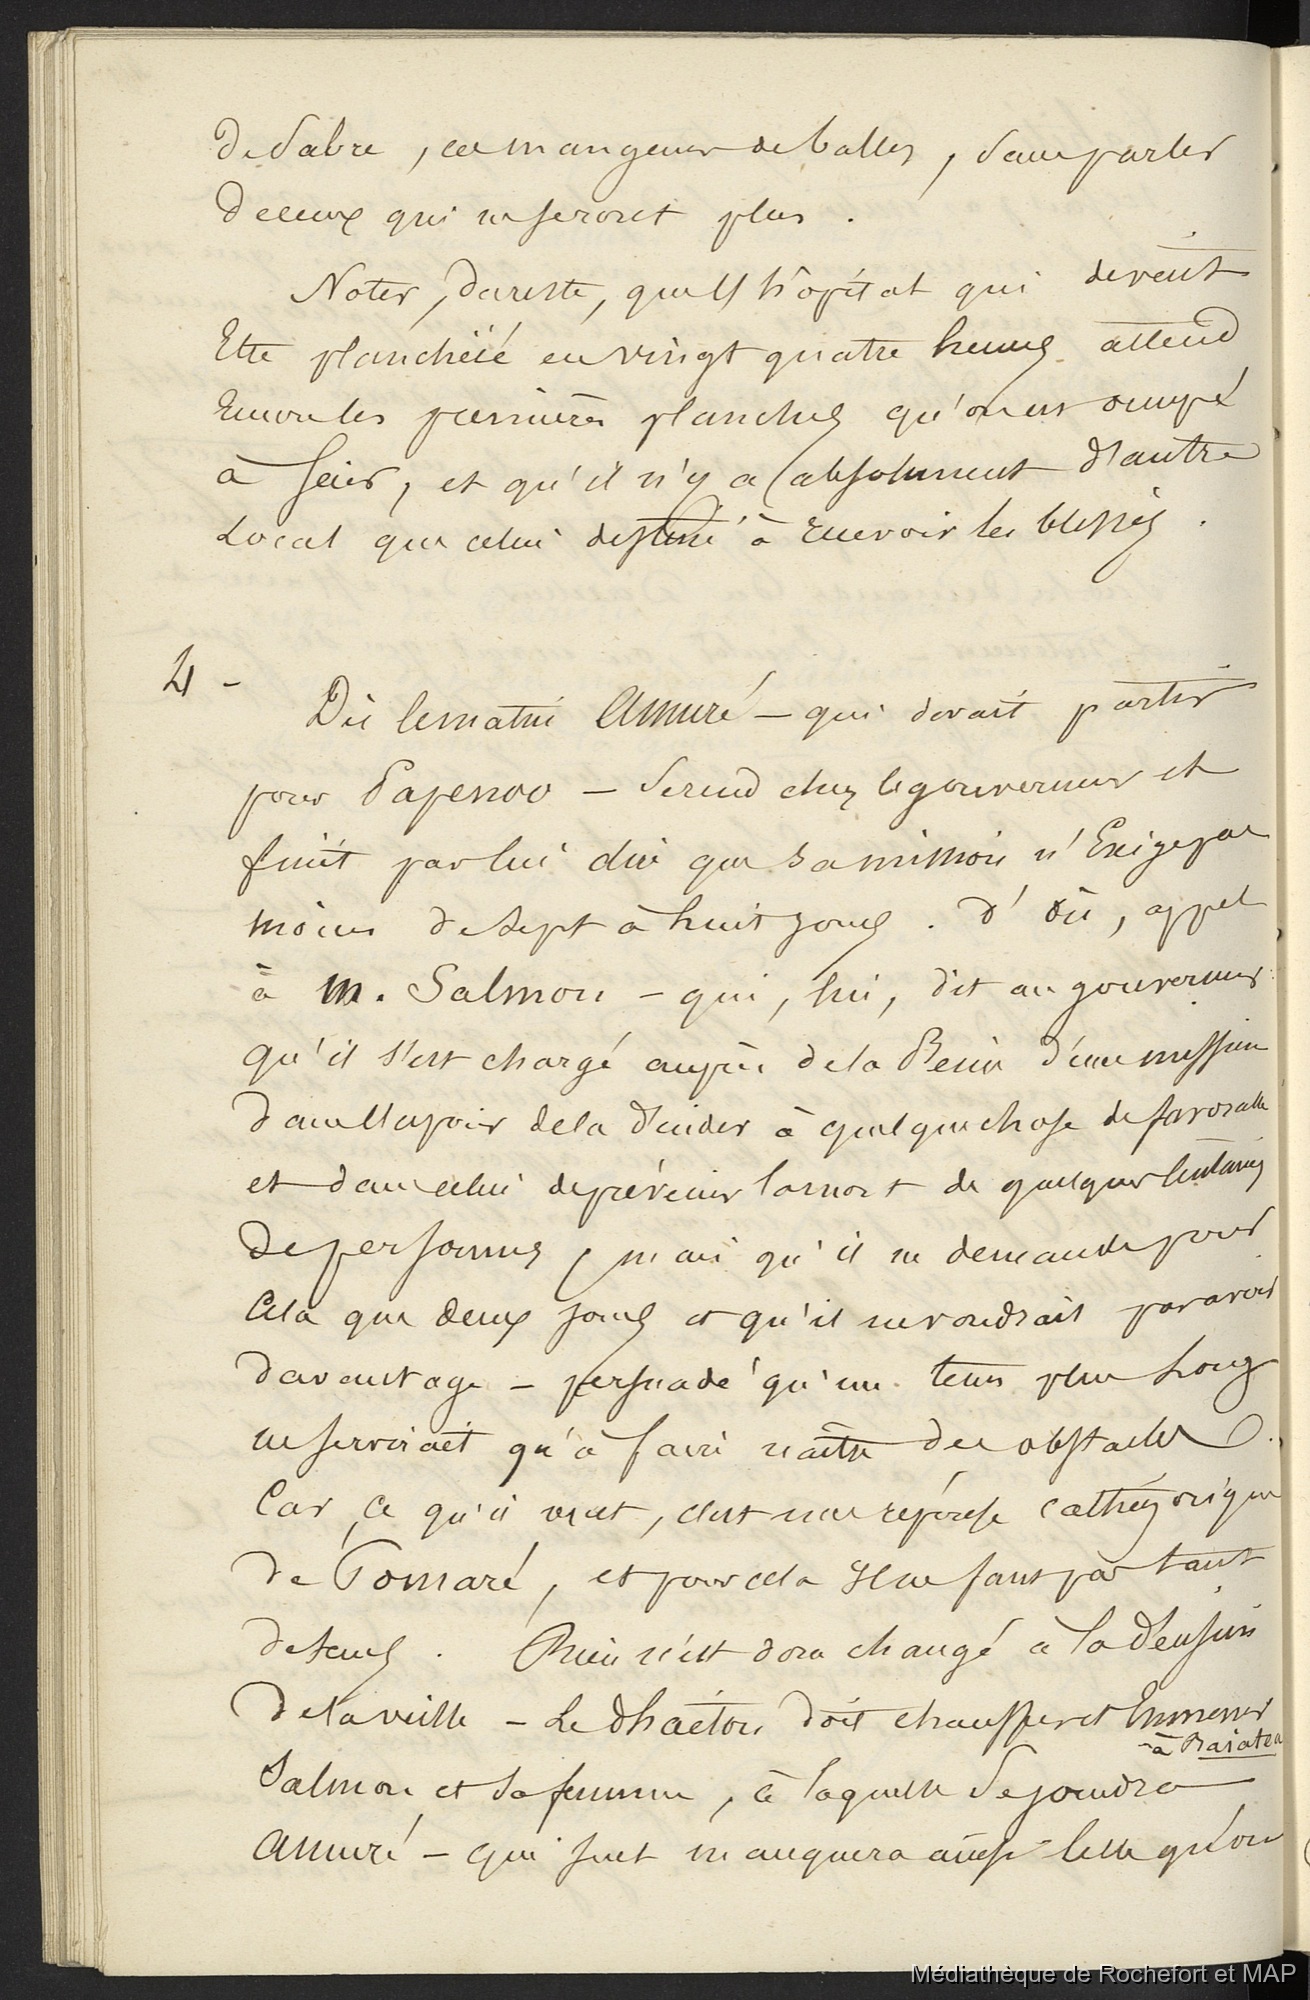 de sabre, ces mangeurs de balles, sans parler
de ceux qui ne seront plus.
Notez, du reste, que l'hôpital qui devait
Etre planchéié en vingt quatre heures attend
Encore les premières planches qu'on est occupé
à scier, et qu'il n'y a absolument d'autre
Local que celui destiné à recevoir les blessés.
4 -
Dès le matin Amuré - qui devait partir
pour Papenoo - se rend chez le gouverneur et
finit par lui dire que sa mission n'Exige pas
moins de sept à huit jours. D'où, appel
à M. Salmon - qui, lui, dit au gouverneur
qu'il s'est chargé auprès de la Reine d'une mission
dans l'espoir de la décider à quelque chose de favorable
et dans celui de prévenir la mort de quelques centaines
de personnes, mais qu'il ne demande pour
Cela que deux jours et qu'il ne voudrait pas avoir
davantage - persuadé qu'un tems plus Long
ne servirait qu'à faire naître des obstacles.
Car, ce qu'il veut, c'est une réponse cathégorique
de Pomaré, et pour cela Il ne faut pas tant
de tems. Rien n'est donc changé à la décision
de la veille - Le Phaéton doit chauffer et Emmener
à Raiatea
Salmon et sa femme, à laquelle se joindra
Amuré - qui seul manquera ainsi celle qu'on
Médiathèque de Rochefort et MAP